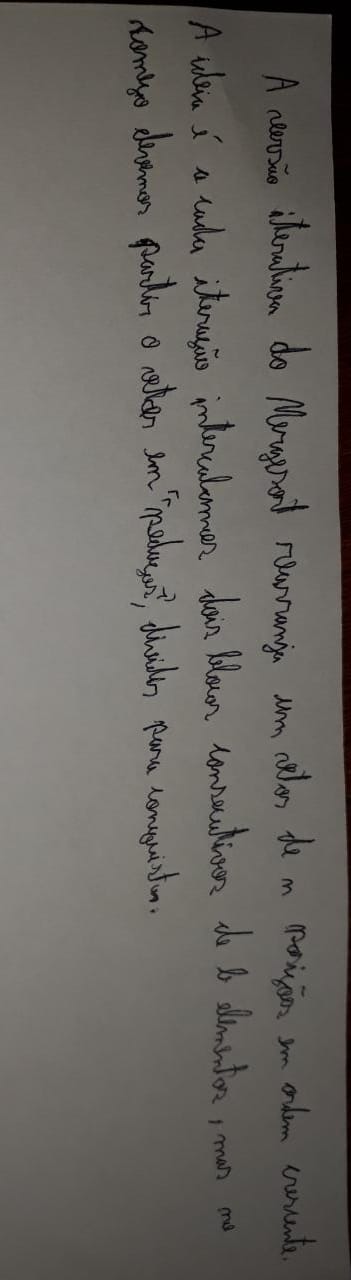 A versão iterativa do Mergesort rearranja um vetor de n posições em ordem crescente.
A ideia é a cada iteração intercalarmos dois blocos consecutivos de b elementos, mas no
começo devemos partir o vetor em "pedaços", dividir para conquistar.